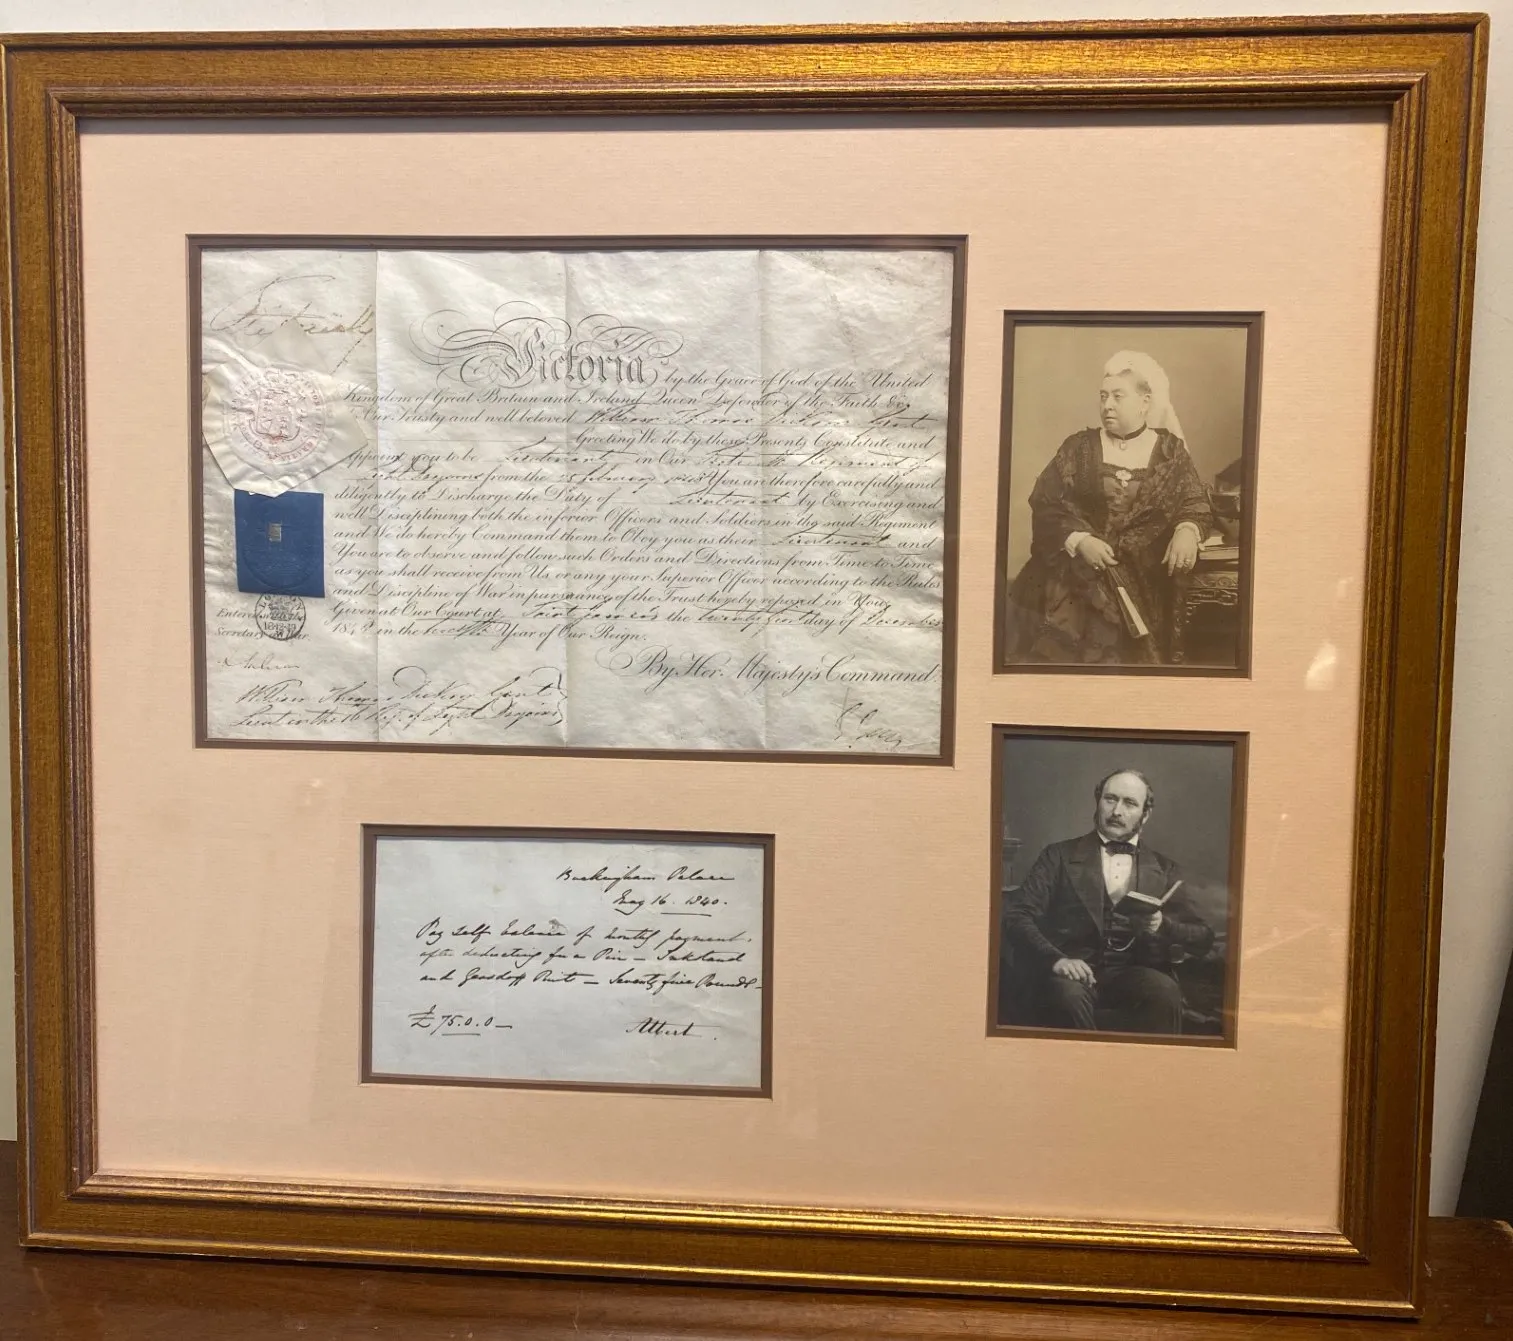 Victoria by the Grace of God of the United
Kingdom of Great Britain and Ireland Queen Defender of the Faith &c.
To Our Trusty and well beloved William Thomas Dickson Gent
Greeting We do by these Presents Constitute and
Appoint you to be Lieutenant in Our Sixteenth Regiment of
Light Dragoons from the 25 February 1848 You are therefore carefully and
diligently to Discharge the Duty of Lieutenant by Exercising and
well Disciplining both the inferior Officers and Soldiers in the said Regiment
and We do hereby Command them to Obey you as their Lieutenant and
You are to observe and follow such Orders and Directions from Time to Time
as you shall receive from Us or any your Superior Officer according to the Rules
and Discipline of War in pursuance of the Trust hereby reposed in You
Given at Our Court at Saint James's the twenty first day of December
1848 in the twelfth Year of Our Reign.
By Her Majesty's Command.
Entered with the
Secretary at War.
William Thomas Dickson Gent
Lieut in the 16 Reg. of Light Dragoons
Buckingham Palace
May 16. 1840.
Pay self balance of monthly payment,
after deducting for a
and Seventy five Pounds
£75.0.0
Albert.